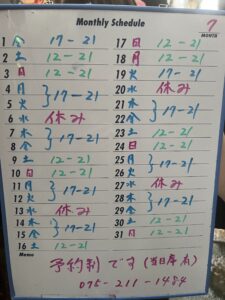 Monthly Schedule
7
MONTH
1 金 17-21
2 土 12-21
3 日 12-21
4 月
5 火 } 17-21
6 水 休み
7 木
8 金 } 17-21
9 土 12-21
10 日 12-21
11 月
12 火 } 17-21
13 水 休み
14 木
15 金 } 17-21
16 土 12-21
17 日 12-21
18 月 12-21
19 火 17-21
20 水 休み
21 木
22 金 } 17-21
23 土 12-21
24 日 12-21
25 月
26 火 } 17-21
27 水 休み
28 木
29 金 } 17-21
30 土 12-21
31 日 12-21
Memo
予約制です (当日
075-211-1484